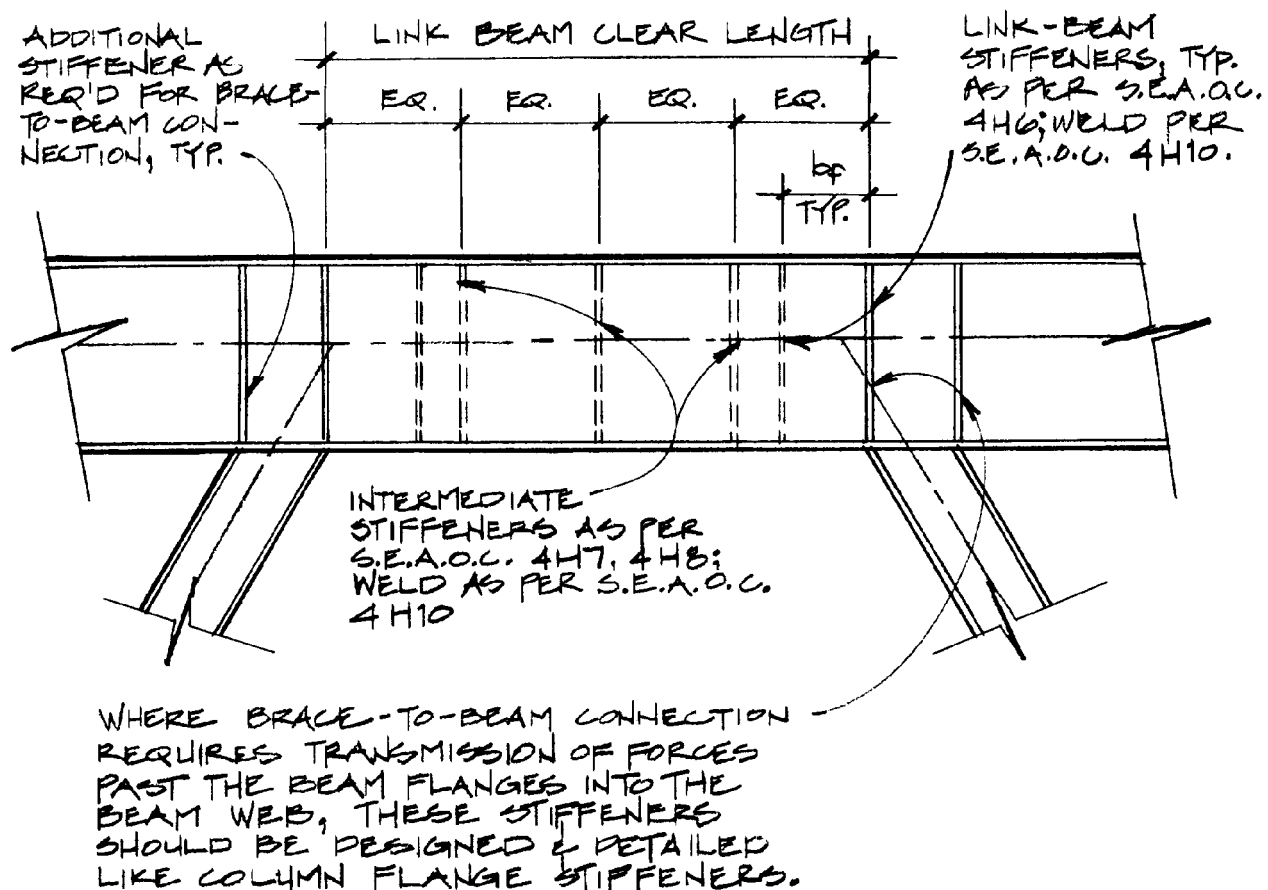 ADDITIONAL
STIFFENER AS
REQ'D FOR BRACE-
TO-BEAM CON-
NECTION, TYP.
LINK BEAM CLEAR LENGTH
EQ. EQ. EQ. EQ.
bf
TYP.
LINK-BEAM
STIFFENERS, TYP.
AS PER S.E.A.O.C.
4H6; WELD PER
S.E.A.O.C. 4H10.
INTERMEDIATE
STIFFENERS AS PER
S.E.A.O.C. 4H7, 4H8;
WELD AS PER S.E.A.O.C.
4H10
WHERE BRACE-TO-BEAM CONNECTION
REQUIRES TRANSMISSION OF FORCES
PAST THE BEAM FLANGES INTO THE
BEAM WEB, THESE STIFFENERS
SHOULD BE DESIGNED & DETAILED
LIKE COLUMN FLANGE STIFFENERS.